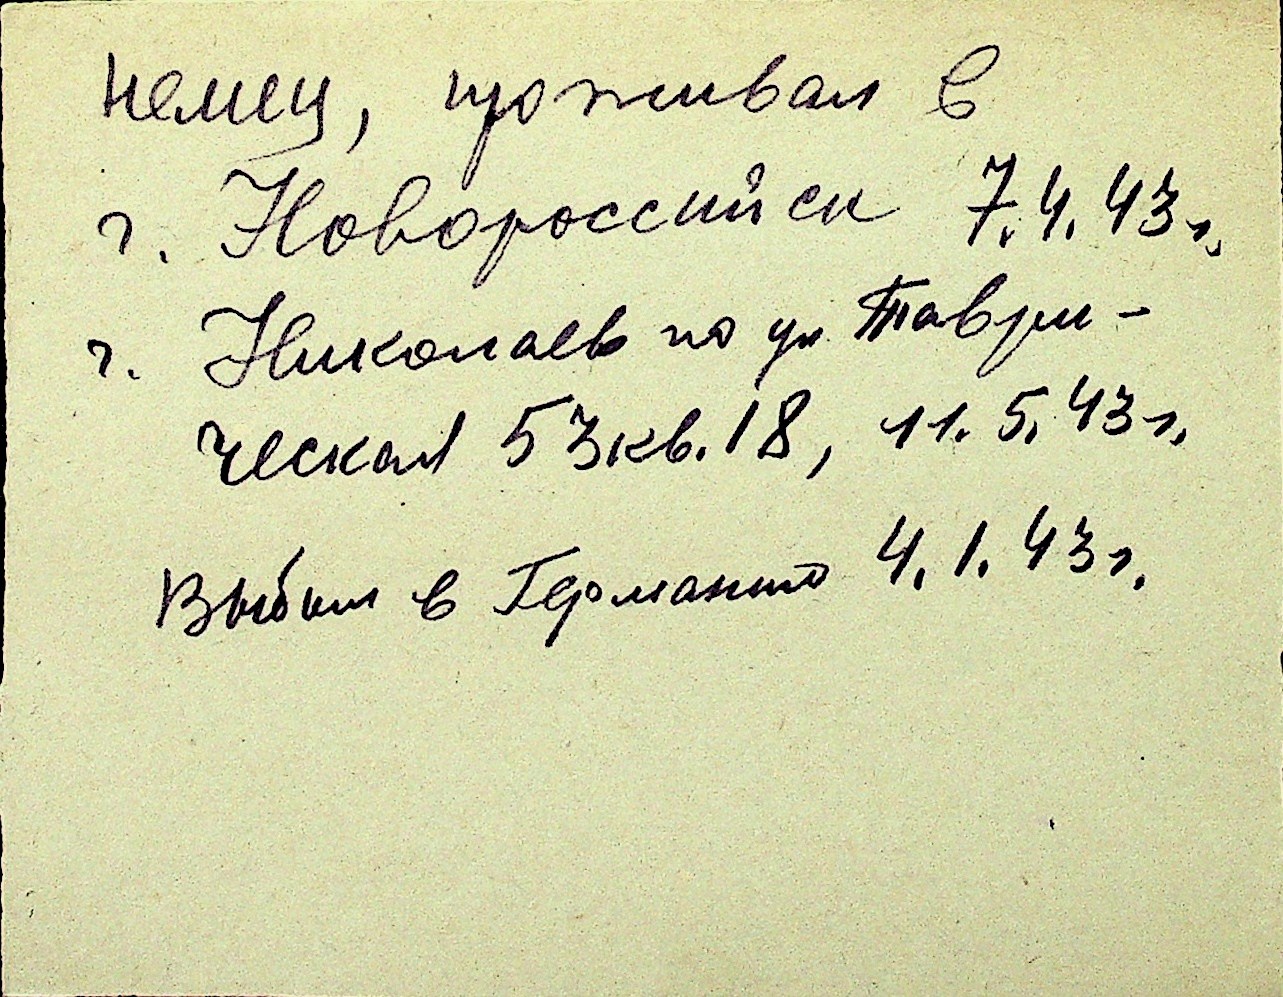 немец, проживал в
г. Новороссийск 7.4.43г.
г. Николаев по ул. Таври-
ческая 53 кв. 18, 11.5.43г.
Выбыл в Германию 4.1.43г.